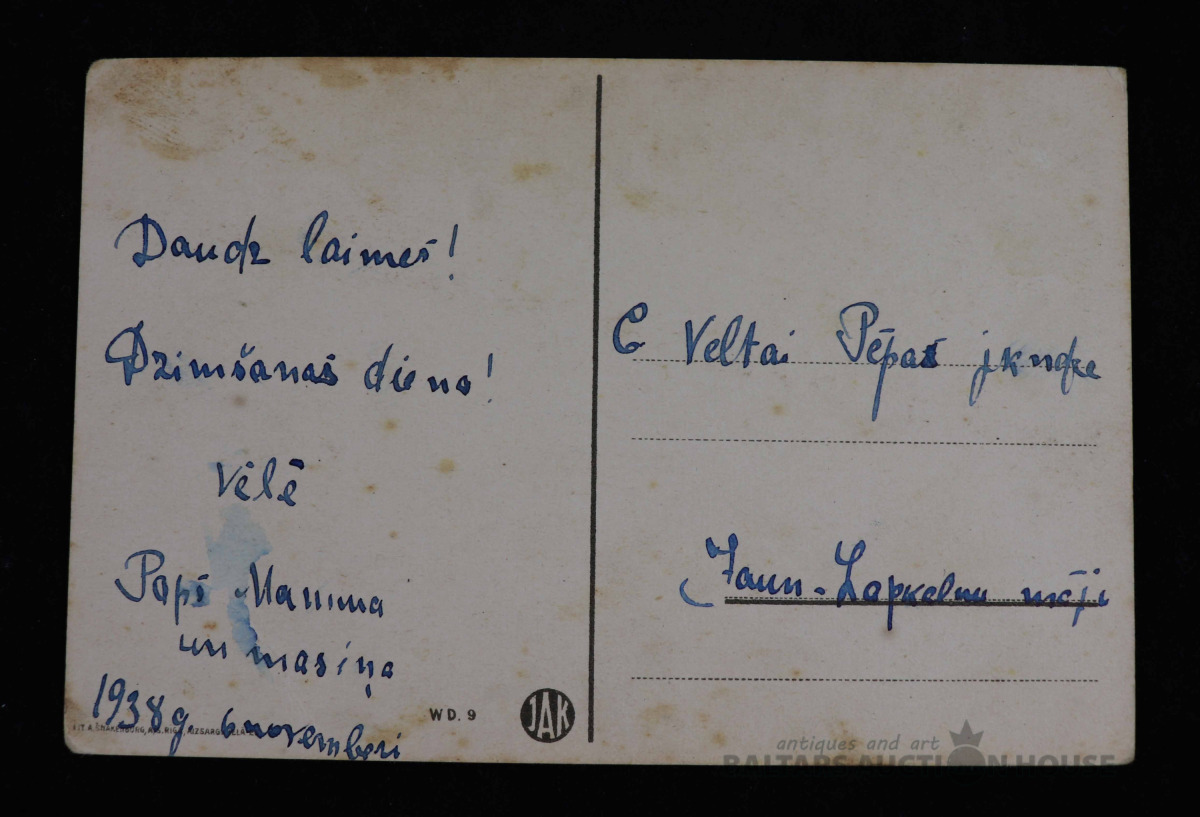 Daudz laimes!
Dzimšanas dieno!
Vēlē
Papš Mamma
un masiņa
1938g. 6 novemberi
WD. 9
JAK
C Veltai Pēpas jkndze
Jaun-Lapkalnu māji
antiques and art
BALTARS AUCTION HOUSE